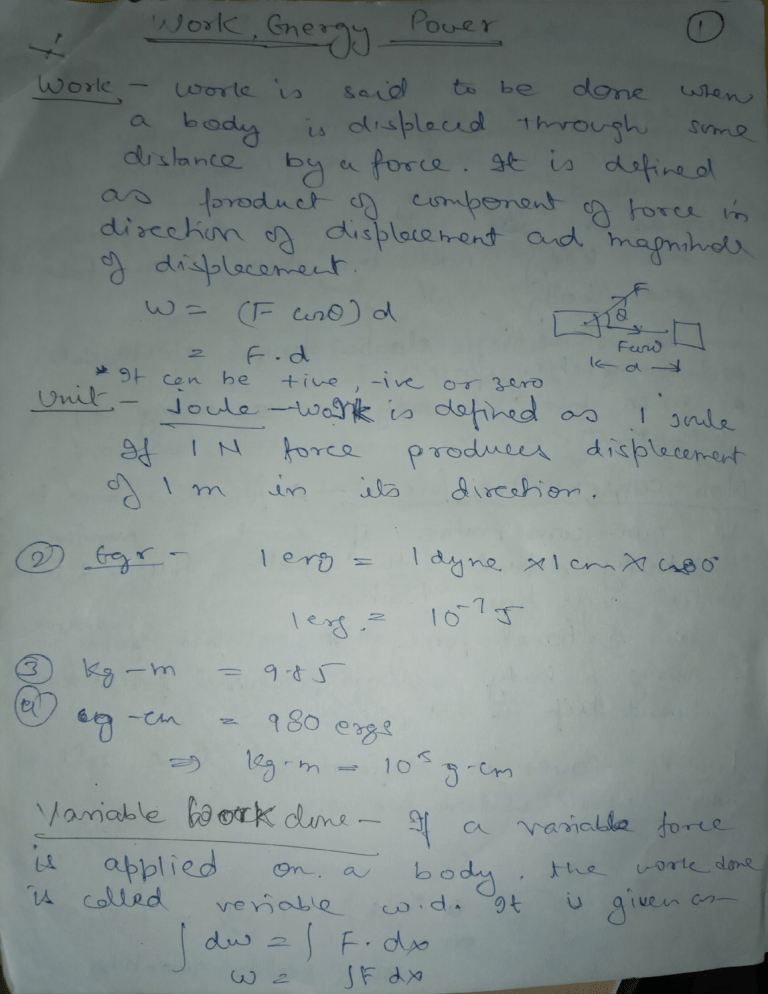 Work, Energy Power
①
Work - work is said to be done when
a body is displaced through some
distance by a force. It is defined
as product of component of force in
direction of displacement and magnitude
of displacement.
W = (F cosθ) d
= F.d
F
θ
Fcosθ
d
* It can be +ive, -ive or zero
Unit - Joule - Work is defined as 1 joule
If 1 N force produces displacement
of 1 m in its direction.
② Ergs - 1 erg = 1 dyne x 1 cm x cos 0°
1 erg = 10⁻⁷ J
③ kg-m = 9.8 J
④ g-cm = 980 ergs
⇒ kg-m = 10⁵ g-cm
Variable Work done - If a variable force
is applied on a body, the work done
is called variable w.d. It is given as -
∫dw = ∫F.dx
w = ∫F dx